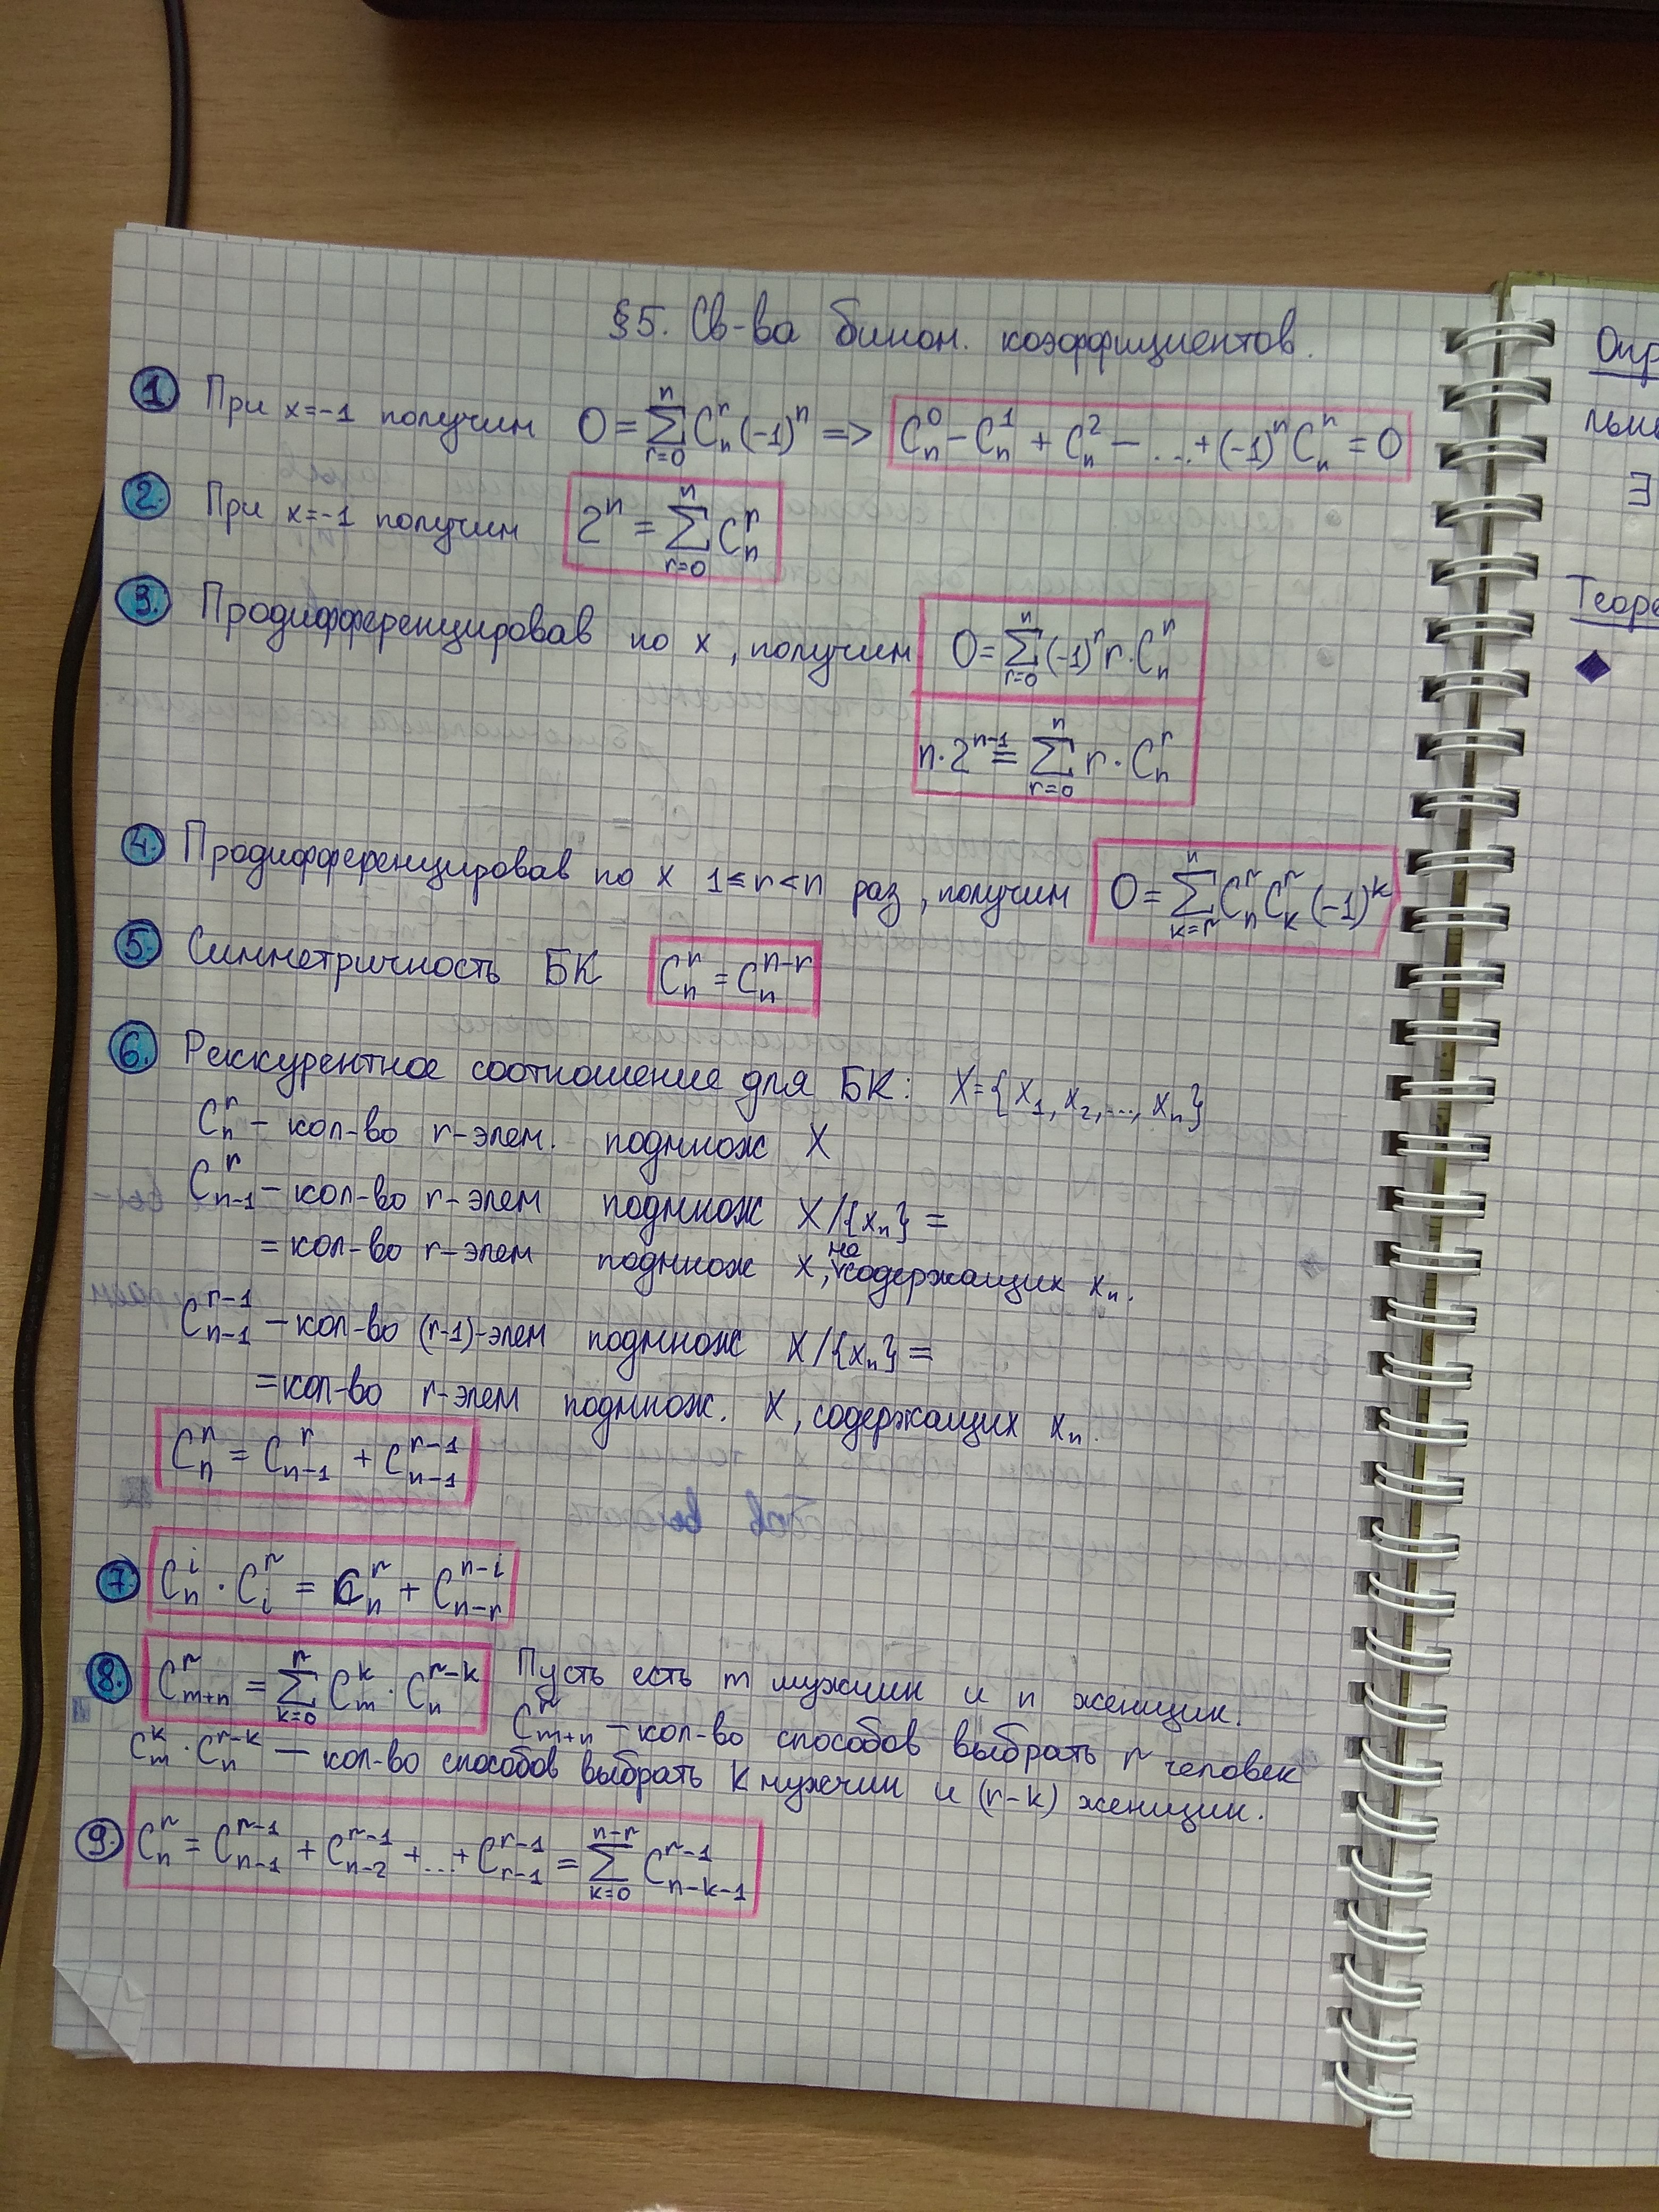 §5. Св-ва бином. коэффициентов.
1. При x=-1 получим 0 = ∑_{r=0}^{n} C_n^r (-1)^n => C_n^0 - C_n^1 + C_n^2 - ... + (-1)^n C_n^n = 0
2. При x=-1 получим 2^n = ∑_{r=0}^{n} C_n^r
3. Продифференцировав по x, получим 0 = ∑_{r=0}^{n} (-1)^r r · C_n^r
n·2^{n-1} = ∑_{r=0}^{n} r · C_n^r
4. Продифференцировав по x 1≤r<n раз, получим 0 = ∑_{k=r}^{n} C_n^r C_k^r (-1)^k
5. Симметричность БК C_n^r = C_n^{n-r}
6. Реккурентное соотношение для БК: X={x_1, x_2, ..., x_n}
C_n^r - кол-во r-элем. подмнож X
C_{n-1}^r - кол-во r-элем подмнож X/{x_n} =
= кол-во r-элем подмнож X, не содержащих x_n.
C_{n-1}^{r-1} - кол-во (r-1)-элем подмнож X/{x_n} =
= кол-во r-элем подмнож. X, содержащих x_n.
C_n^r = C_{n-1}^r + C_{n-1}^{r-1}
7. C_n^i · C_i^r = C_n^r + C_{n-r}^{n-i}
8. C_{m+n}^r = ∑_{k=0}^{r} C_m^k · C_n^{r-k} Пусть есть m мужчин и n женщин.
C_{m+n}^r - кол-во способов выбрать r человек
C_m^k · C_n^{r-k} — кол-во способов выбрать k мужчин и (r-k) женщин.
9. C_n^r = C_{n-1}^{r-1} + C_{n-2}^{r-1} + ... + C_{r-1}^{r-1} = ∑_{k=0}^{n-r} C_{n-k-1}^{r-1}
Опр
льне
∃
Теоре